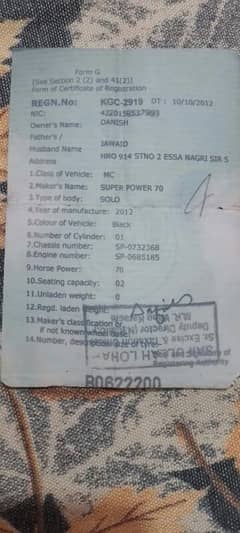 Form G
[See Section 2 (2) and 41(2)]
Form of Certificate of Registration
REGN.No: KGC-2919 DT : 10/10/2012
NIC:
Owner's Name: DANISH
Father's /
Husband Name JAWAID
Address HNO 914 STNO 2 ESSA NAGRI SIR S
1.Class of Vehicle: MC
2.Maker's Name: SUPER POWER 70
3.Type of body: SOLO
4.Year of manufacture: 2012
5.Colour of Vehicle: Black
6.Number of Cylinder: 01
7.Chassis number: SP-0732368
8.Engine number: SP-0685185
9.Horse Power: 70
10.Seating capacity: 02
11.Unladen weight: 0
12.Regd. laden weight:
13.Maker's classification or
if not known wheel base:
14.Number, description
Registering Authority
Deputy Director
B0622200